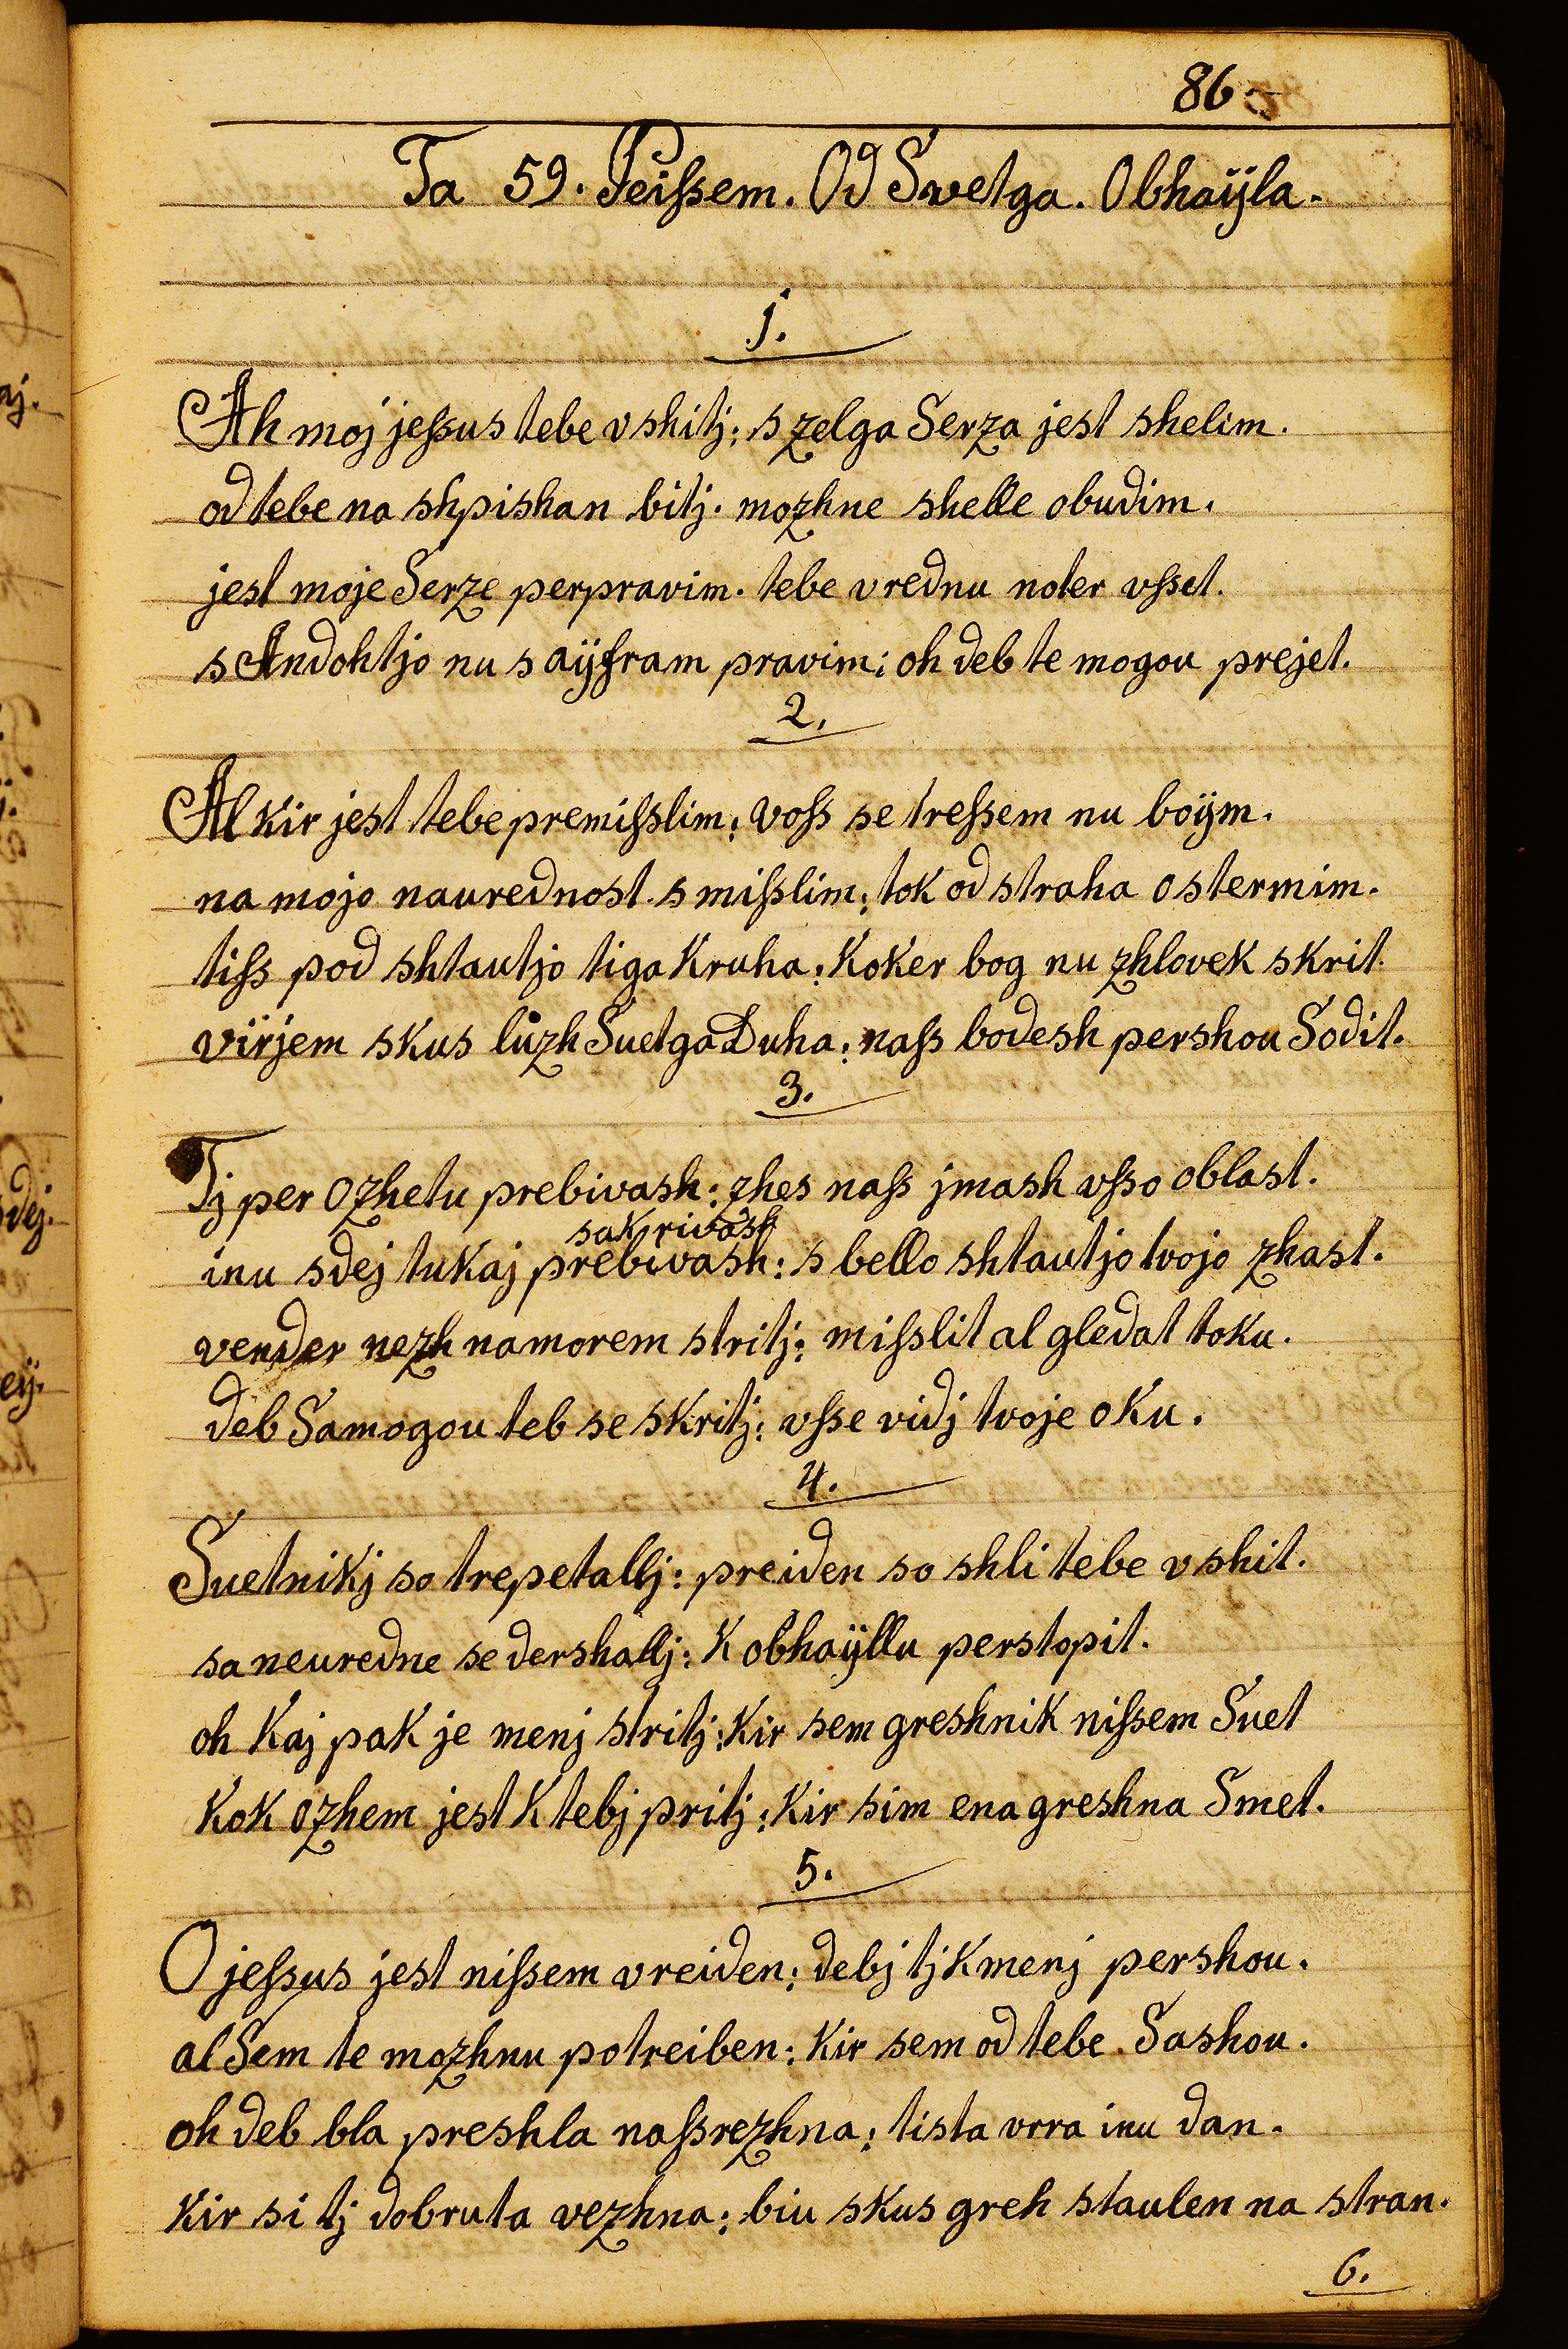 86.
Ta 59. Peißem. Od Swetga. Obhaÿla.
1.
Ah moj jeßus tebe vshitj: s zelga Serza jest shelim.
od tebe na shpishan bitj. mozhne shelle obudim.
jest moje Serze perpravim. tebe vrednu noter vßet.
s Andohtjo nu s aÿfram pravim: oh deb te mogou prejet.
2.
Al kir jest tebe premißlim: voß se treßem nu boÿm.
na mojo naurednost smißlim: tok od straha ostermim.
tiß pod shtautjo tiga Kruha: Koker bog nu zhlovek skrit.
virjem skus luzh SuetgaDuha: naß bodesh pershou Sodit.
3.
Tj per Ozhetu prebivash: zhes naß jmash vßo oblast.
sakrivash
inu sdej tukaj prebivash: s bello shtautjo tvojo zhast.
vender nezh namorem stritj: mißlit al gledat toku.
deb Samogou teb se skritj: vße vidj tvoje oku.
4.
Suetnikj so trepetallj: preiden so shli tebe vshit.
sa neuredne se dershallj: K obhaÿllu perstopit.
oh Kaj pak je menj stritj: Kir sem greshnik nißem Suet
Kok ozhem jest K tebj pritj: Kir sim ena greshna Smet.
5.
O jeßus jest nißem vreiden: debj tj K menj pershou.
al Sem te mozhnu potreiben: Kir sem od tebe Sashou.
oh deb bla preshla naßrezhna: tista vrra inu dan.
Kir si tj dobruta vezhna: biu skus greh staulen na stran.
6.